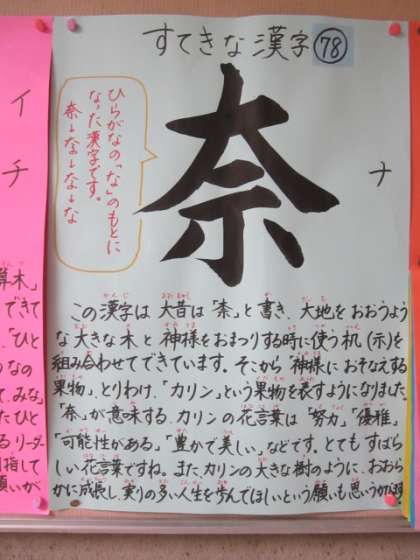 すてきな漢字 78
奈
ナ
ひらがなの「な」のもとに
なった漢字です。
奈→な→な→な
この漢字は大昔は「柰」と書き、大地をおおうよう
な大きな木と神様をおまつりする時に使う机(示)を
組み合わせてできています。そこから「神様におそなえする
果物」、とりわけ、「カリン」という果物を表すようになりました。
「奈」が意味する、カリンの花言葉は「努力」「優雅」
「可能性がある」「豊かで美しい」などです。とてもすばら
しい花言葉ですね。またカリンの大きな樹のように、おおら
かに成長し、実りの多い人生を歩んでほしいという願いも思いうかびます
イ
チ
算木」
できて
「ひと
なの
て、みな
たひと
るリーダー
指して
願いが